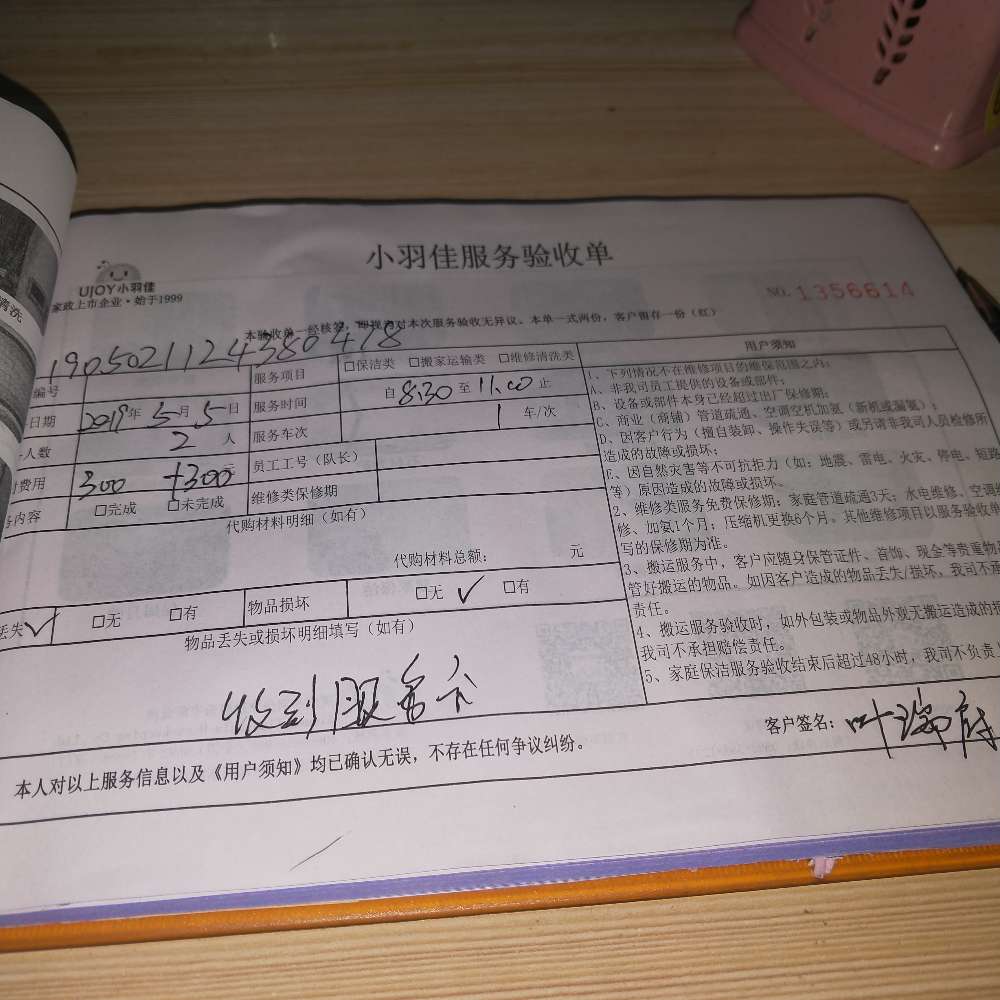 清洗
小羽佳服务验收单
UJOY小羽佳
家政上市企业·始于1999
NO. 1356614
本验收单一经核签，即视应对本次服务验收无异议。本单一式两份，客户留存一份（红）
编号 1905021124380478 服务项目 □保洁类 □搬家运输类 □维修清洗类
日期 2019年5月5日 服务时间 自8:30至11:00止
人数 2人 服务车次 1 车/次
费用 300 +300元 员工工号（队长）
内容 □完成 □未完成 维修类保修期
代购材料明细（如有）
代购材料总额： 元
丢失 ✓ □无 □有 物品损坏 □无 ✓ □有
物品丢失或损坏明细填写（如有）
收到服务卡
用户须知
1、下列情况不在维修项目的维保范围之内：
A、非我司员工提供的设备或部件；
B、设备或部件本身已经超过出厂保修期；
C、商业（商铺）管道疏通、空调空机加氨（新机或漏氨）；
D、因客户行为（擅自装卸、操作失误等）或另请非我司人员检修所
造成的故障或损坏；
E、因自然灾害等不可抗拒力（如：地震、雷电、火灾、停电、短路
等）原因造成的故障或损坏。
2、维修类服务免费保修期：家庭管道疏通3天；水电维修、空调维
修、加氨1个月；压缩机更换6个月。其他维修项目以服务验收单
写的保修期为准。
3、搬运服务中，客户应随身保管证件、首饰、现金等贵重物品
管好搬运的物品。如因客户造成的物品丢失/损坏，我司不承
责任。
4、搬运服务验收时，如外包装或物品外观无搬运造成的损
我司不承担赔偿责任。
5、家庭保洁服务验收结束后超过48小时，我司不负责
本人对以上服务信息以及《用户须知》均已确认无误，不存在任何争议纠纷。
客户签名：叶瑞